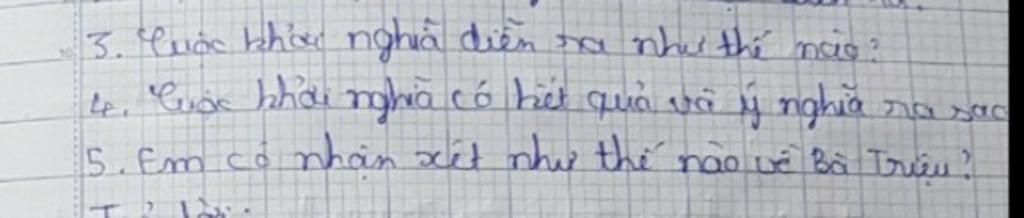 3. Cuộc khởi nghĩa diễn ra như thế nào?
4. Cuộc khởi nghĩa có kết quả và ý nghĩa ra sao
5. Em có nhận xét như thế nào về Bà Triệu?